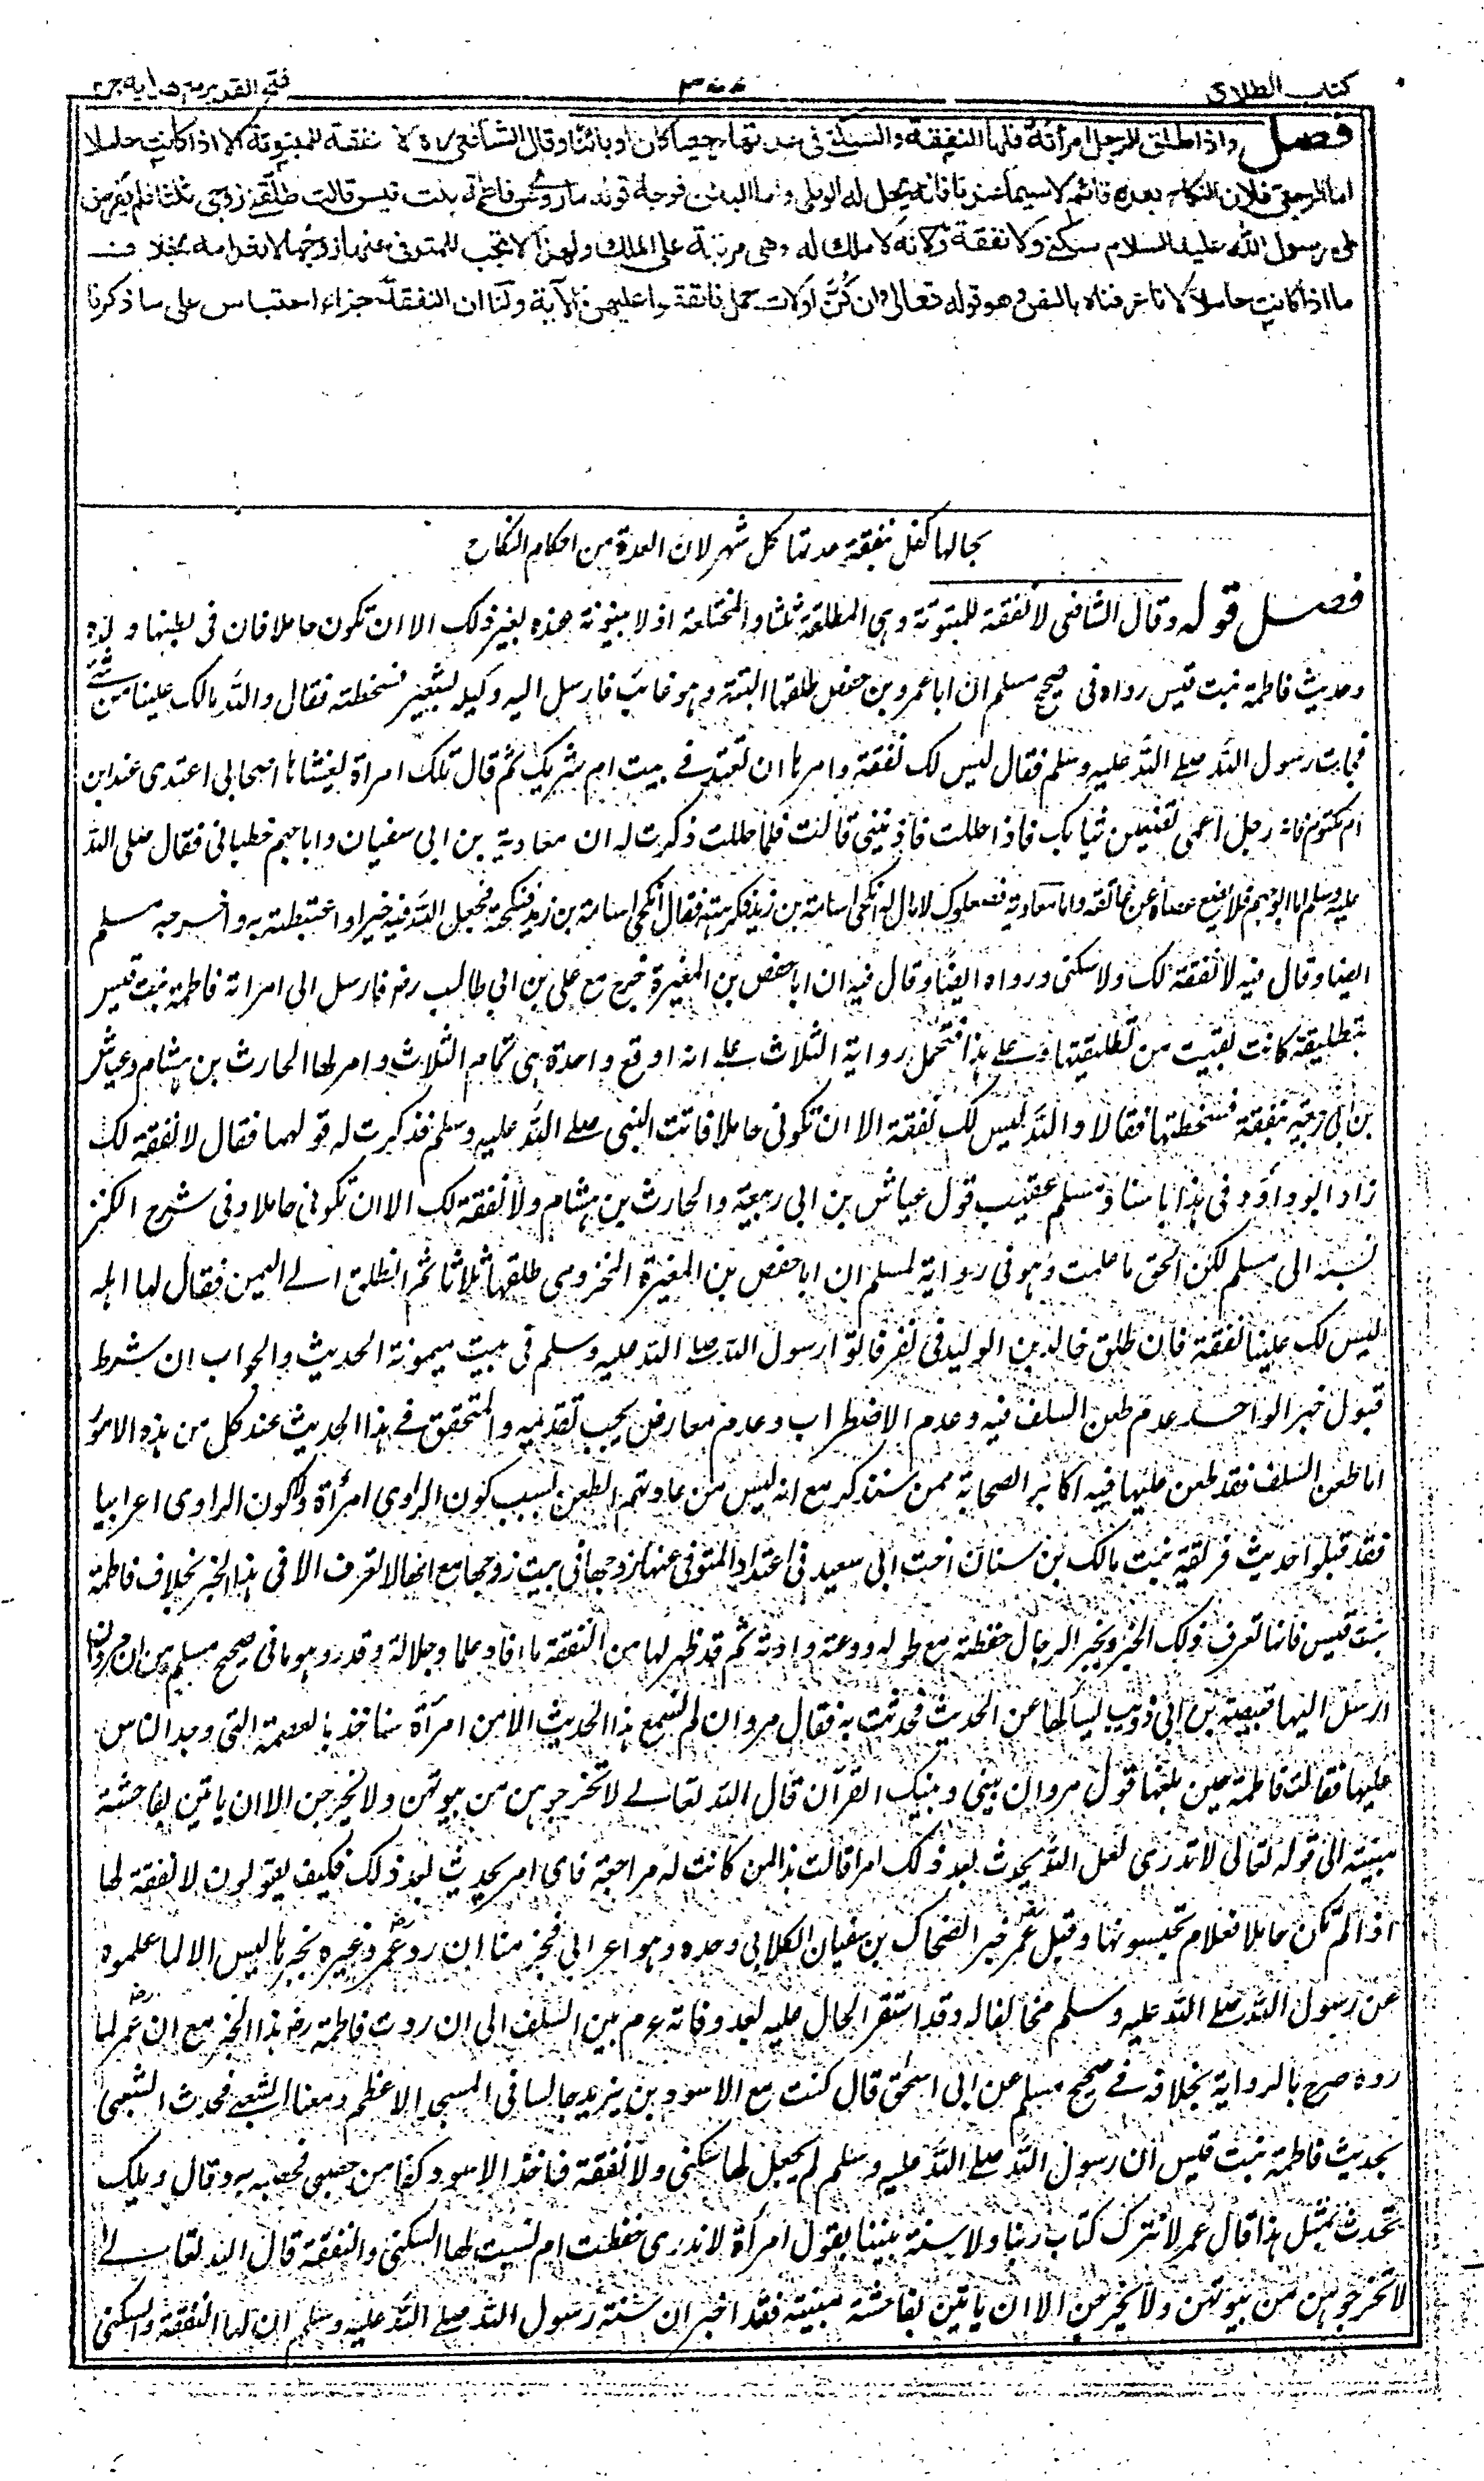 كتاب الطلاق
فتح القدير مع هدايه ج٢
فصل واذا طلق الرجل امرأته فلها النفقة والسكنى فى عدتها رجعيا كان او بائنا وقال الشافعى رہ لا نفقة للمبتوتة الا اذا كانت حاملا
اما الرجعى فلان النكاح بعده قائم لا سيما عندنا فانه يحل له الوطى واما البائن فوجه قوله ما روى عن فاطمة بنت قيس قالت طلقنى زوجى ثلثا فلم يفرض
لى رسول الله عليه السلام سكنى ولا نفقة ولانه لا ملك له وهى مرتبة على الملك ولهذا لا تجب للمتوفى عنها زوجها لانعدامه بخلاف
ما اذا كانت حاملا لانا عرفناه بالنص وهو قوله تعالى وان كن اولات حمل فانفقوا عليهن الآية ولنا ان النفقة جزاء احتباس على ما ذكرنا
بحالها كفل نفقة عدتها كل شهر لان العدة من احكام النكاح
فصل قوله وقال الشافعى لا نفقة للمبتوتة وهى المطلقة ثلثا والمختلعة اذ لا بينونة عنده بغير ذلك الا ان تكون حاملا فان فى بطنها ولده
وحديث فاطمة بنت قيس رواه فى صحيح مسلم ان ابا عمرو بن حفص طلقها البتة وهو غائب فارسل اليه وكيله بشعير فسخطته فقال والله مالك علينا من شئ
فجاءت رسول الله صلى الله عليه وسلم فقال ليس لك نفقة وامرها ان تعتد فى بيت ام شريك ثم قال تلك امرأة يغشاها اصحابى اعتدى عند ابن
ام مكتوم فانه رجل اعمى تضعين ثيابك فاذا حللت فاذنينى قالت فلما حللت ذكرت له ان معاوية بن ابى سفيان وابا جهم خطبانى فقال صلى الله
عليه وسلم اما ابو جهم فلا يضع عصاه عن عاتقه واما معاوية فصعلوك لا مال له انكحى اسامة بن زيد فكرهته فقال انكحى اسامة بن زيد فنكحته فجعل الله فيه خيرا واغتبطت به واخرجه مسلم
ايضا وقال فيه لا نفقة لك ولا سكنى ورواه ايضا وقال فيه ان ابا حفص بن المغيرة خرج مع على بن ابى طالب رض فارسل الى امراته فاطمة بنت قيس
بتطليقة كانت بقيت من تطليقتها وعلى هذا فتحمل رواية الثلاث على انه اوقع واحدة هى تمام الثلاث وامر لها الحارث بن هشام وعياش
بن ابى ربيعة بنفقة فسخطتها فقالا والله ليس لك نفقة الا ان تكونى حاملا فاتت النبى صلى الله عليه وسلم فذكرت له قولهما فقال لا نفقة لك
زاد ابو داود فى هذا باسناد مسلم عقيب قول عياش بن ابى ربيعة والحارث بن هشام ولا نفقة لك الا ان تكونى حاملا وفى شرح الكنز
نسبه الى مسلم لكن الحق ما علمت وهو فى رواية لمسلم ان ابا حفص بن المغيرة المخزومى طلقها ثلاثا ثم انطلق الى اليمن فقال لها اهله
ليس لك علينا نفقة فانطلق خالد بن الوليد فى نفر فاتوا رسول الله صلى الله عليه وسلم فى بيت ميمونة الحديث والجواب ان شرط
قبول خبر الواحد عدم طعن السلف فيه وعدم الاضطراب وعدم معارض يجب تقديمه والمتحقق فى هذا الحديث عند كل من هذه الامور
اما طعن السلف فقد طعن عليها فيه اكابر الصحابة ممن سنذكر مع انه ليس من عادتهم الطعن بسبب كون الراوى امرأة ولا كون الراوى اعرابيا
فقد قبلوا حديث فريعة بنت مالك بن سنان اخت ابى سعيد فى اعتداد المتوفى عنها زوجها فى بيت زوجها مع انها لا تعرف الا فى هذا الخبر بخلاف فاطمة
بنت قيس فانها تعرف بذلك الخبر وبخبر الدجال حفظته مع طوله ووعته وادته ثم قد ظهر لها من الفقه ما افاد علما وجلالة وقدر وهو ما فى صحيح مسلم من ان مروان
ارسل اليها قبيصة بن ابى ذويب يسألها عن الحديث فحدثته به فقال مروان لم نسمع هذا الحديث الا من امرأة سناخذ بالعصمة التى وجدنا الناس
عليها فقالت فاطمة حين بلغها قول مروان بينى وبينك القرآن قال الله تعالى لا تخرجوهن من بيوتهن ولا يخرجن الا ان ياتين بفاحشة
مبينة الى قوله تعالى لا تدرى لعل الله يحدث بعد ذلك امرا قالت هذا لمن كانت له مراجعة فاى امر يحدث بعد ذلك فكيف يقولون لا نفقة لها
اذا لم تكن حاملا فعلام تحبسونها وقبل عمر خبر الضحاك بن سفيان الكلابى وحده وهو اعرابى فجزمنا ان رد عمر وغيره بخبرها ليس الا لما علموه
عن رسول الله صلى الله عليه وسلم مخالفا له وقد استقر الحال عليه بعد وفاته عم بين السلف الى ان روت فاطمة رض هذا الخبر مع ان عمر لما
رده صرح بالرواية بخلافه فى صحيح مسلم عن ابى اسحق قال كنت مع الاسود بن يزيد جالسا فى المسجد الاعظم ومعنا الشعبى فحدث الشعبى
بحديث فاطمة بنت قيس ان رسول الله صلى الله عليه وسلم لم يجعل لها سكنى ولا نفقة فاخذ الاسود كفا من حصى فحصبه به وقال ويلك
تحدث بمثل هذا قال عمر لا نترك كتاب ربنا ولا سنة نبينا بقول امرأة لا ندرى حفظت ام نسيت لها السكنى والنفقة قال الله تعالى
لا تخرجوهن من بيوتهن ولا يخرجن الا ان ياتين بفاحشة مبينة فقد اخبر ان سنة رسول الله صلى الله عليه وسلم ان لها النفقة والسكنى